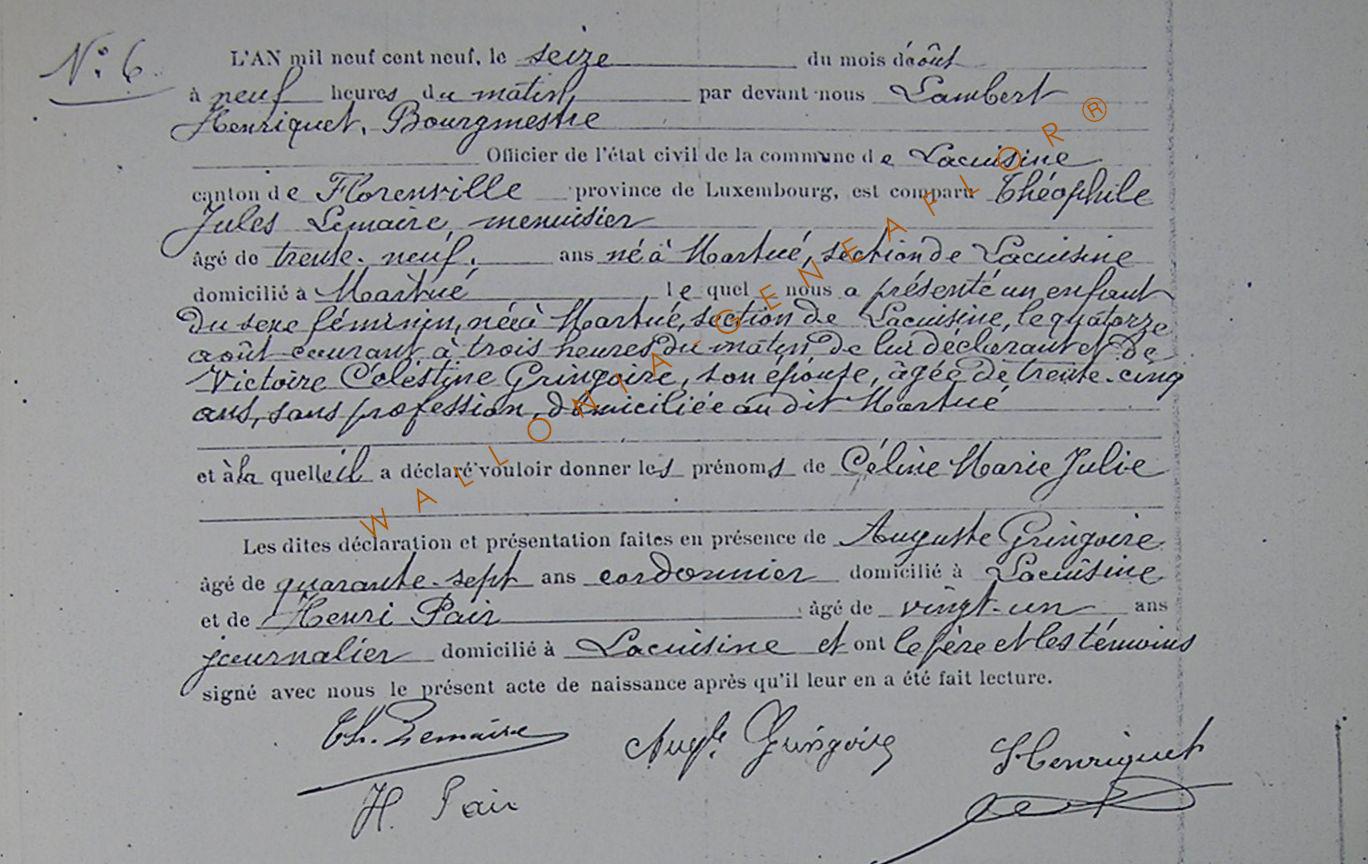 N° 6
L'AN mil neuf cent neuf, le seize du mois d'août
à neuf heures du matin, par devant nous Lambert
Henriquet, Bourgmestre
Officier de l'état civil de la commune de Lacuisine
canton de Florenville province de Luxembourg, est comparu Théophile
Jules Lemaire, menuisier
âgé de trente-neuf, ans né à Martué, section de Lacuisine
domicilié à Martué lequel nous a présenté un enfant
du sexe féminin, née à Martué, section de Lacuisine, le quatorze
août courant à trois heures du matin de lui déclarant et de
Victoire Célestine Gringoire, son épouse, âgée de trente-cinq
ans, sans profession, domiciliée au dit Martué
et à la quelle il a déclaré vouloir donner les prénoms de Céline Marie Julie
Les dites déclaration et présentation faites en présence de Auguste Gringoire
âgé de quarante-sept ans cordonnier domicilié à Lacuisine
et de Henri Pair âgé de vingt-un ans
journalier domicilié à Lacuisine et ont le père et les témoins
signé avec nous le présent acte de naissance après qu'il leur en a été fait lecture.
Th. Lemaire Aug.te Gringoire LHenriquet
H. Pair
WALLONIA-GENEAFLOR®